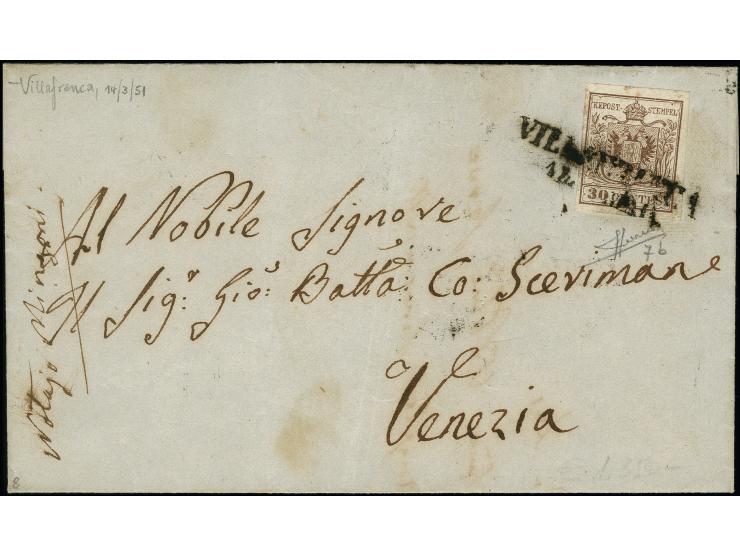 Villafranca, 14/3/51
KKPOST-STEMPEL
30 CENTES
Al Nobile Signore
Il Sigr: Gio: Batta Co: Sceriman
a Venezia
Notajo
7b
8